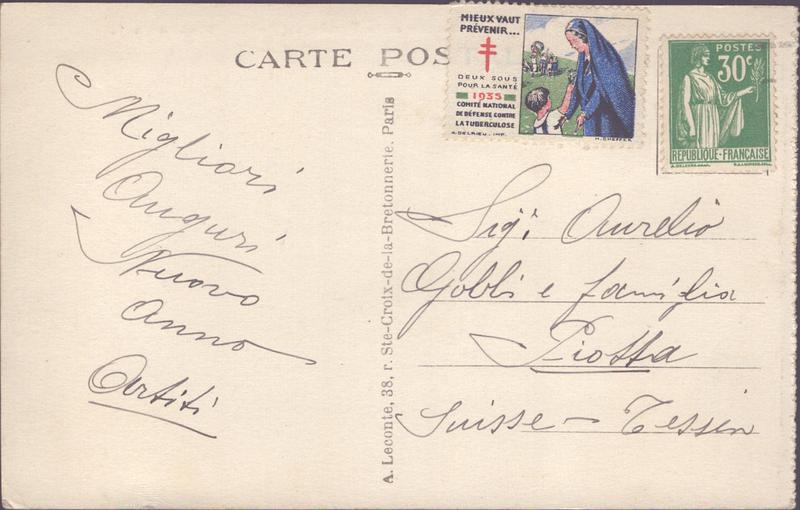 CARTE POSTALE
MIEUX VAUT
PRÉVENIR...
DEUX SOUS
POUR LA SANTÉ
1935
COMITÉ NATIONAL
DE DÉFENSE CONTRE
LA TUBERCULOSE
A. DELRIEU. IMP.
POSTES
30c
RÉPUBLIQUE-FRANÇAISE
Migliori
Auguri
Nuovo
Anno
Artiti
A. Leconte, 38, r. Ste-Croix-de-la-Bretonnerie, Paris
Sig: Aurelio
Gobbi e famiglia
Piotta
Suisse - Tessin